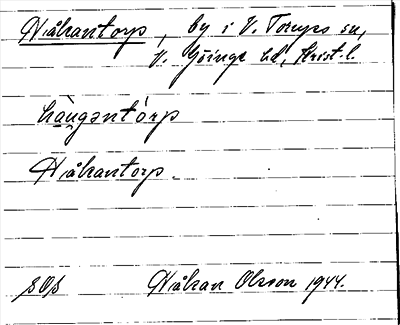 Håkantorp, by i V. Torups sn,
V. Göinge hd, Krist. l.
hàu̯gəntórp
Håkantorp.
SOS Håkan Olsson 1944.